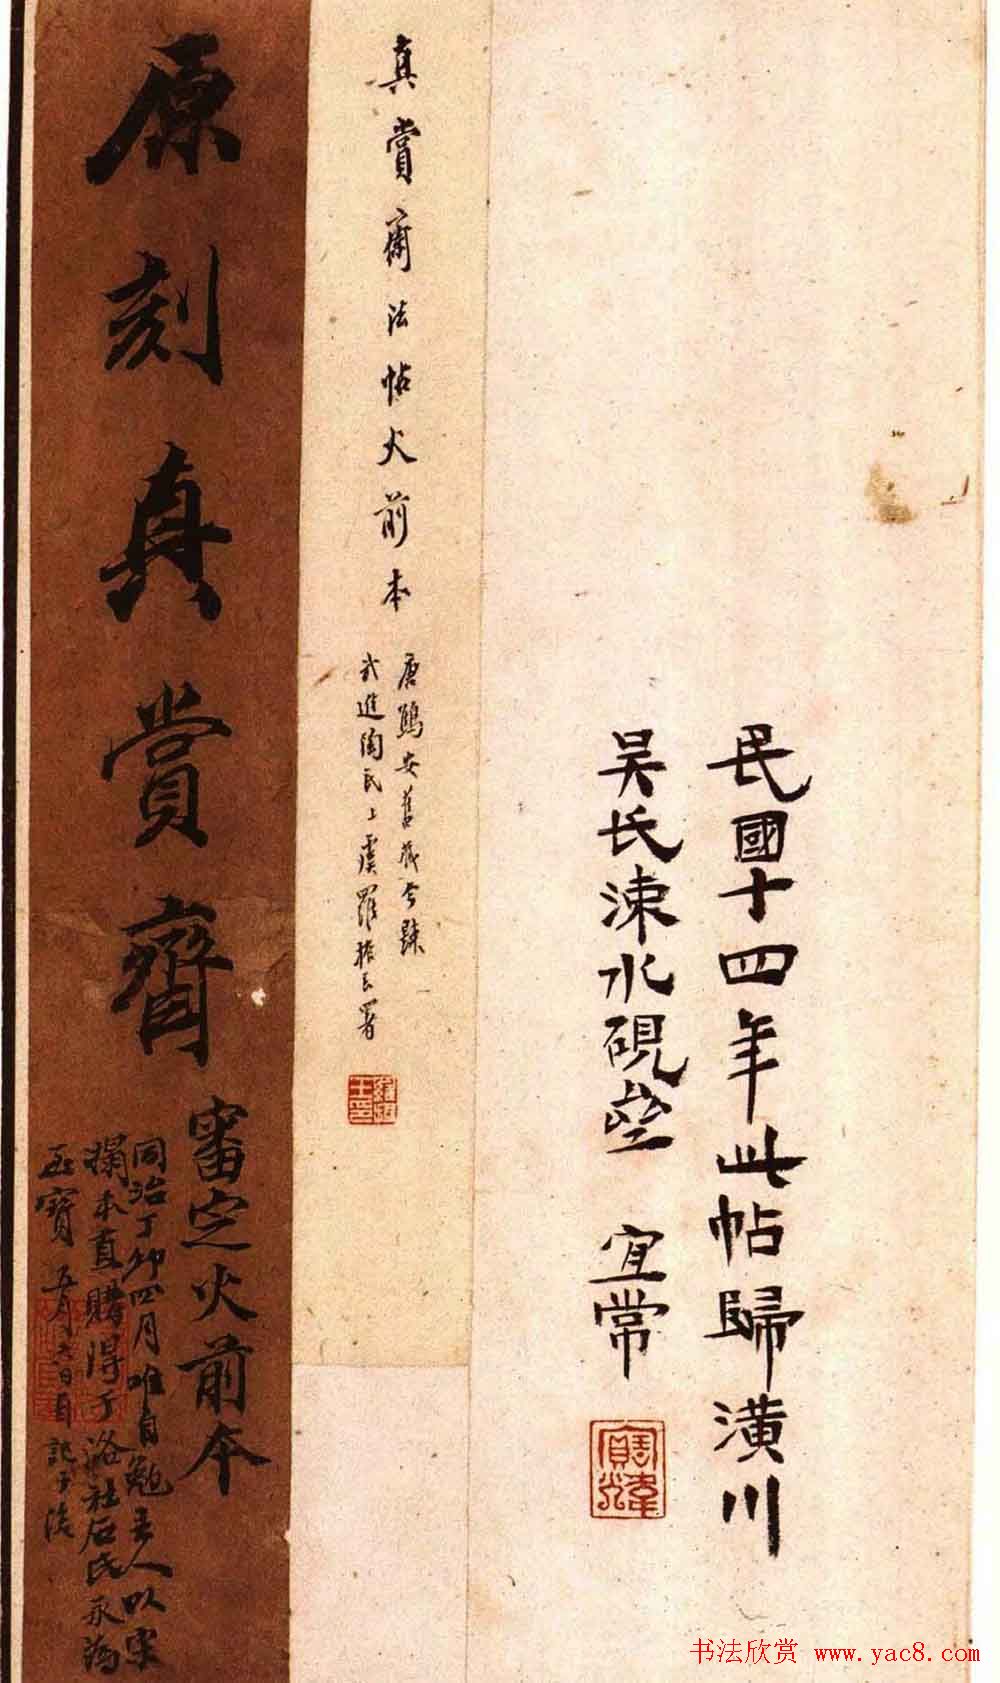 民國十四年此帖歸潢川
吴氏涑水硯㙜 宜常
真賞齋法帖火前本
唐鷦安舊藏今歸
武進陶氏上虞羅振玉署
羅振玉印
原刻真賞齋
審定火前本
同治丁卯四月唯自勉主人以宋
搨本直購得于洛社石氏永為
至寶 五月六日自記于後
书法欣赏 www.yac8.com